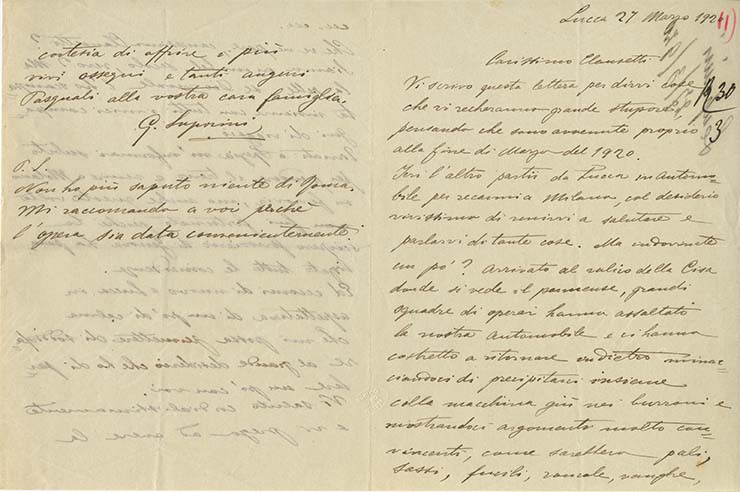 cortesia di offrire i più
vivi ossequi e tanti auguri
Pasquali alla vostra cara famiglia.
G. Luporini
P.S.
Non ho più saputo niente di Roma.
Mi raccomando a voi perchè
l'opera sia data convenientemente
Lucca 27 Marzo 192
11)
Carissimo Clausetti
Vi scrivo questa lettera per dirvi cose
che vi recheranno grande stupore,
pensando che sono avvenute proprio
alla fine di Marzo del 1920.
30
3
Ieri l'altro partii da Lucca in automo-
bile per recarmi a Milano, col desiderio
vivissimo di venirvi a salutare e
parlarvi di tante cose. Ma indovinate
un pó? Arrivato al valico della Cisa
donde si vede il parmense, grandi
squadre di operai hanno assaltato
la nostra Automobile e ci hanno
costretto a ritornare indietro minac-
ciandoci di precipitarci insieme
colla macchina giù nei burroni e
mostrandoci argomenti molto con-
vincenti, come sarebbero pali,
sassi, fucili, roncole, vanghe,